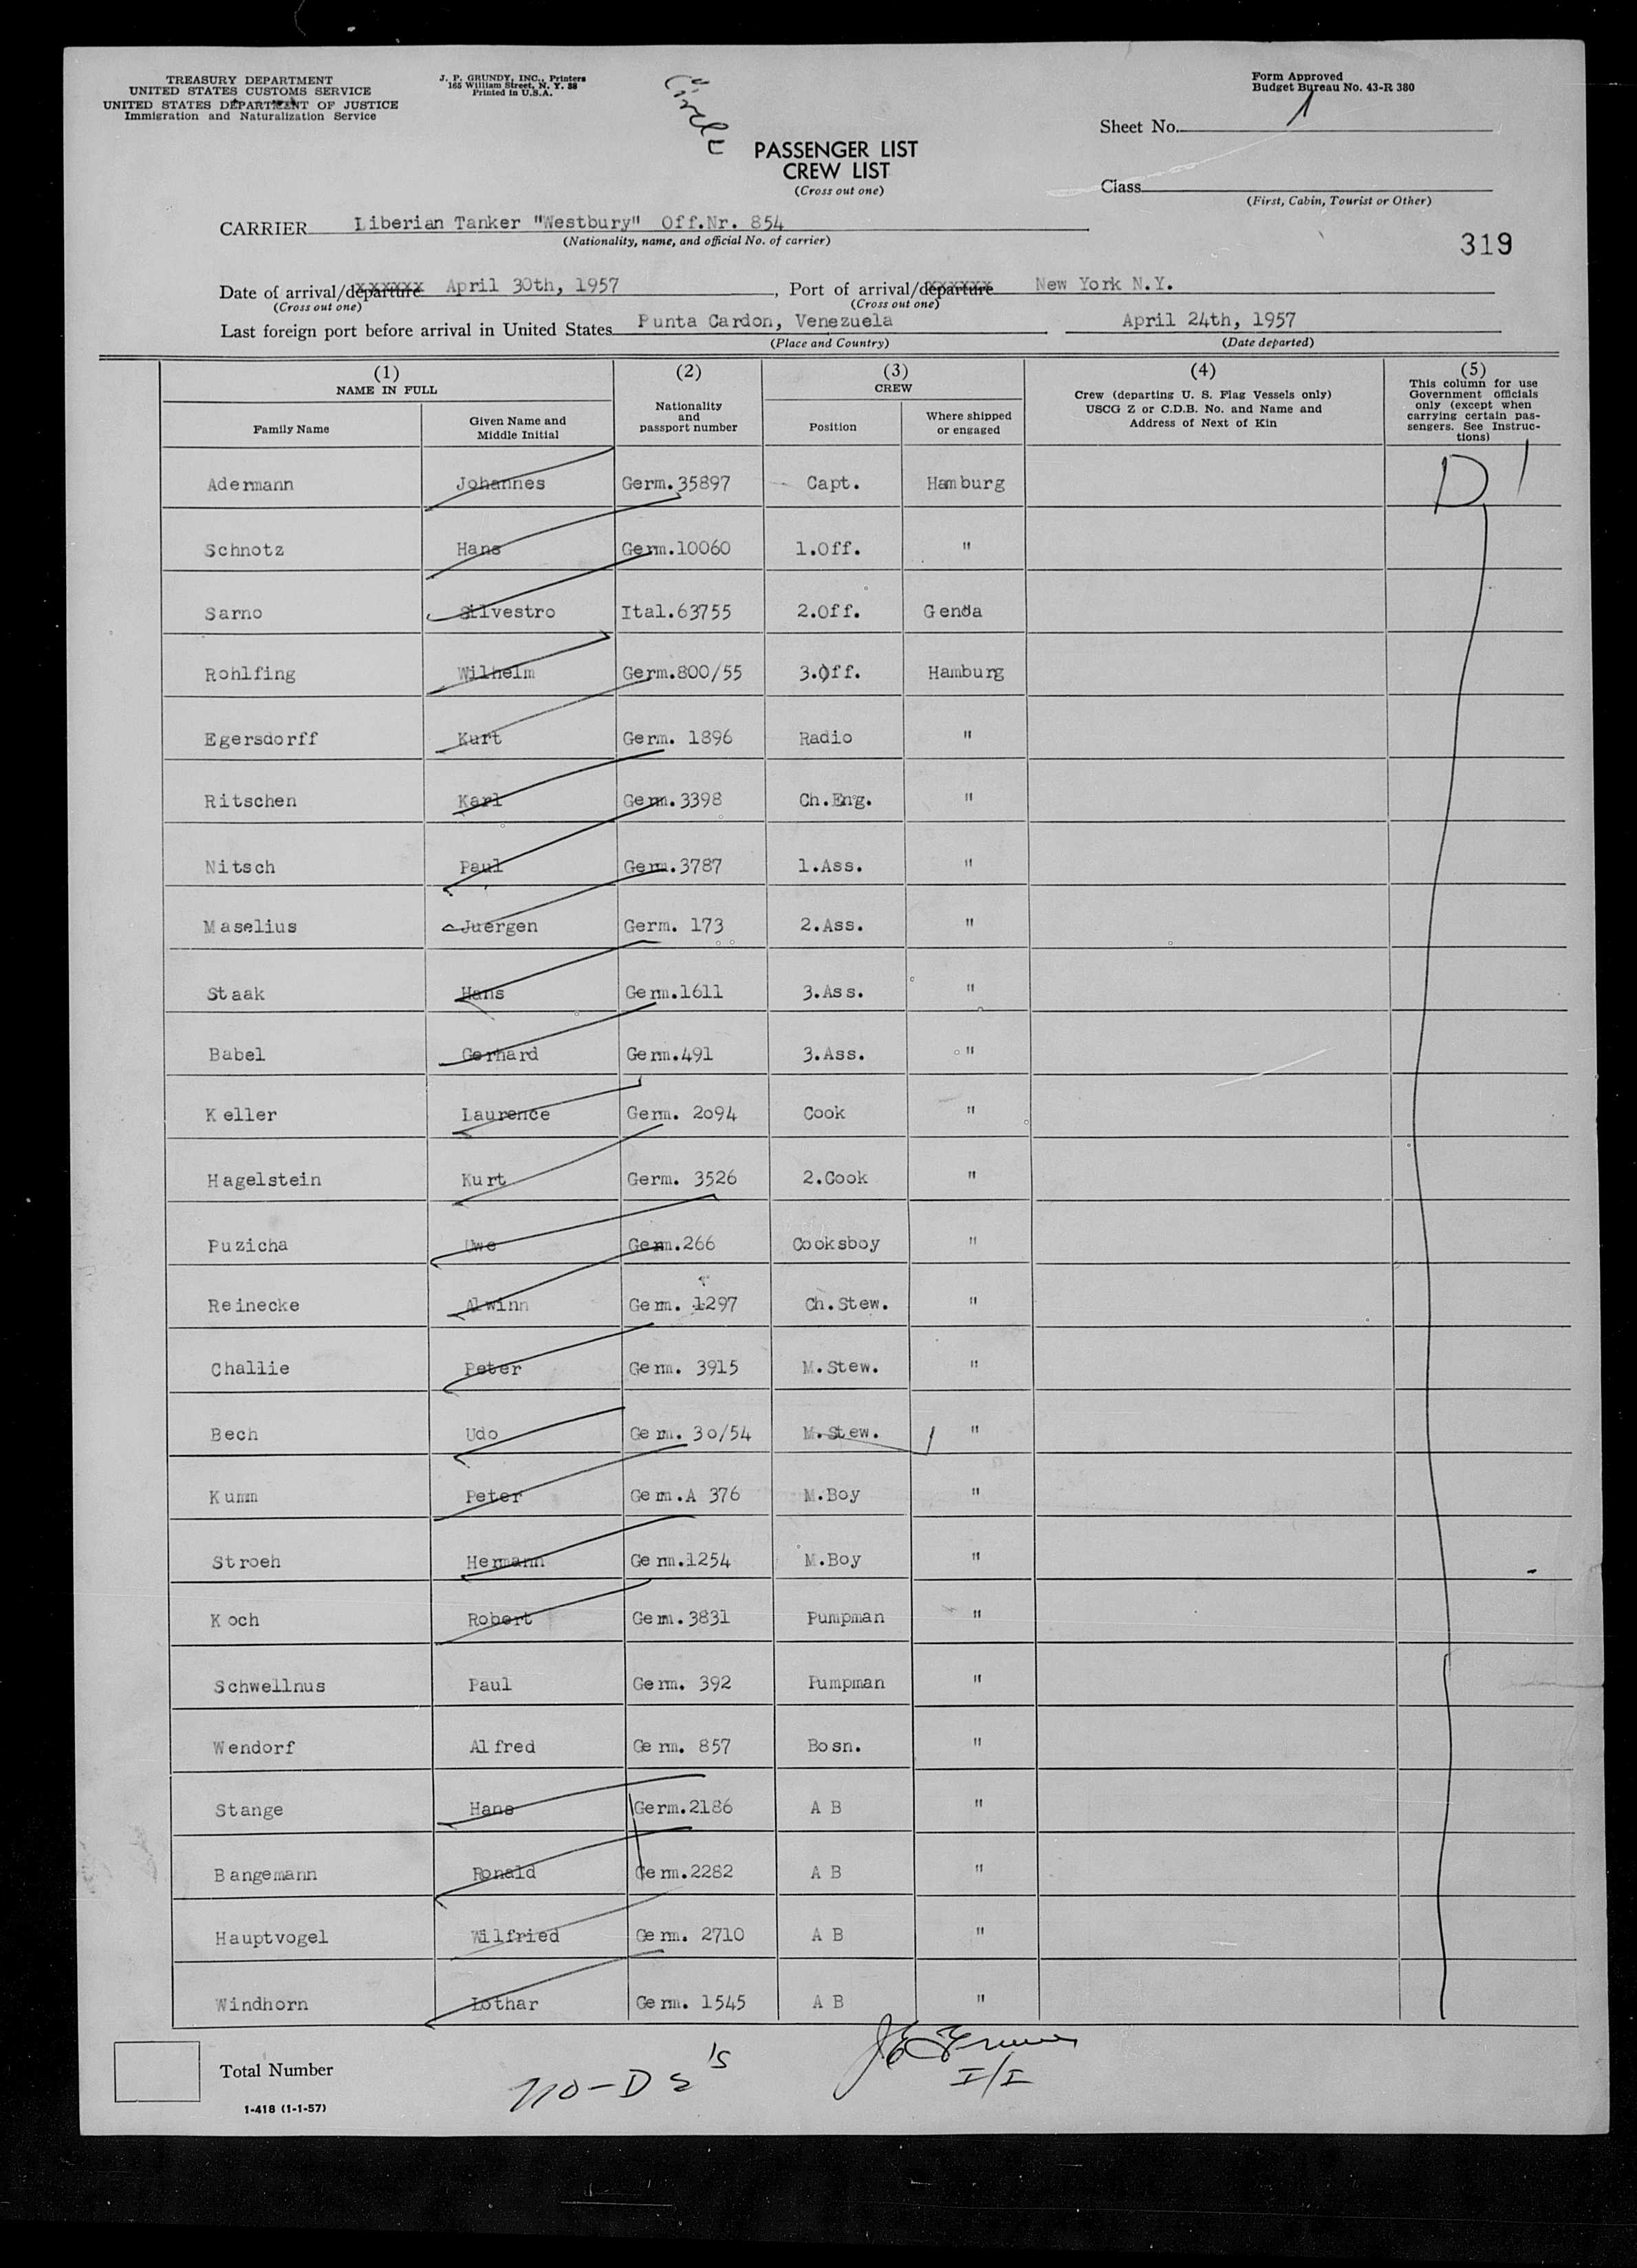 TREASURY DEPARTMENT
UNITED STATES CUSTOMS SERVICE
UNITED STATES DEPARTMENT OF JUSTICE
Immigration and Naturalization Service
J. P. GRUNDY, INC., Printers
165 William Street, N. Y. 38
Printed in U.S.A.
Form Approved
Budget Bureau No. 43-R 380
Sheet No. 1
PASSENGER LIST
CREW LIST
(Cross out one)
Class
(First, Cabin, Tourist or Other)
CARRIER Liberian Tanker "Westbury" Off.Nr. 854
(Nationality, name, and official No. of carrier)
319
Date of arrival/departure April 30th, 1957, Port of arrival/departure New York N.Y.
(Cross out one) (Cross out one)
Last foreign port before arrival in United States Punta Cardon, Venezuela April 24th, 1957
(Place and Country) (Date departed)
(1) (2) (3) (4) (5)
NAME IN FULL
Family Name
Given Name and Middle Initial
Nationality and passport number
CREW
Position
Where shipped or engaged
Crew (departing U. S. Flag Vessels only)
USCG Z or C.D.B. No. and Name and
Address of Next of Kin
This column for use
Government officials
only (except when
carrying certain pas-
sengers. See Instruc-
tions)
Adermann Johannes Germ.35897 Capt. Hamburg D 1
Schnotz Hans Germ.10060 1.Off. "
Sarno Silvestro Ital.63755 2.Off. Genoa
Rohlfing Wilhelm Germ.800/55 3.Off. Hamburg
Egersdorff Kurt Germ. 1896 Radio "
Ritschen Karl Germ.3398 Ch.Eng. "
Nitsch Paul Germ.3787 1.Ass. "
Maselius Juergen Germ. 173 2.Ass. "
Staak Hans Germ.1611 3.Ass. "
Babel Gerhard Germ.491 3.Ass. "
Keller Laurence Germ. 2o94 Cook "
Hagelstein Kurt Germ. 3526 2.Cook "
Puzicha Uwe Germ.266 Cooksboy "
Reinecke Alwinn Germ. 1297 Ch.Stew. "
Challie Peter Germ. 3915 M.Stew. "
Bech Udo Germ. 3o/54 M.Stew. "
Kumm Peter Germ.A 376 M.Boy "
Stroeh Hermann Germ.1254 M.Boy "
Koch Robert Germ.3831 Pumpman "
Schwellnus Paul Germ. 392 Pumpman "
Wendorf Alfred Germ. 857 Bosn. "
Stange Hans Germ.2186 A B "
Bangemann Ronald Germ.2282 A B "
Hauptvogel Wilfried Germ. 2710 A B "
Windhorn Lothar Germ. 1545 A B "
Total Number
I/I
1-418 (1-1-57)